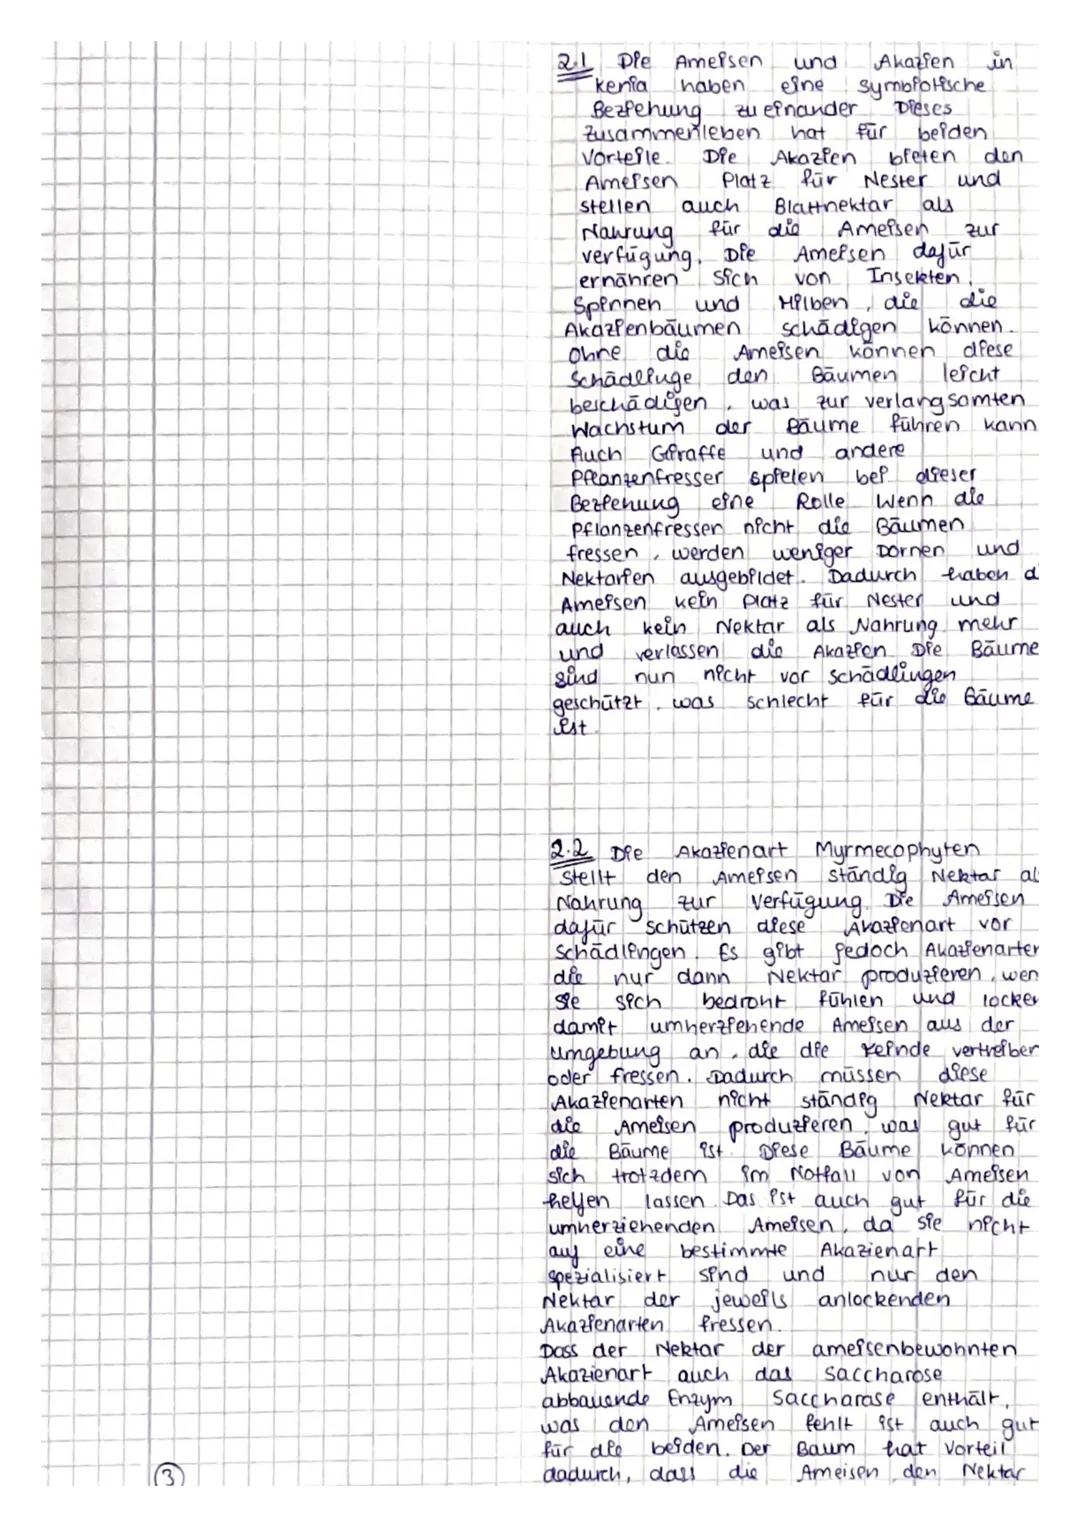 2.1 Die Ameisen und Akazien in
kenia haben eine symbiotische
Beziehung zu einander Dieses
Zusammenleben hat für beiden
Vorteile. Die Akazien bieten den
Ameisen Platz für Nester und
stellen auch Blattnektar als
Nahrung für die Ameisen zur
verfügung. Die Ameisen dafür
ernähren sich von Insekten,
Spinnen und Milben, die die
Akazienbäumen schädigen können.
Ohne die Ameisen können diese
Schädlinge den Bäumen leicht
beschädigen, was zur verlangsamten
Wachstum der Bäume führen kann
Auch Giraffe und andere
Pflanzenfresser spielen bei dieser
Beziehung eine Rolle Wenn die
Pflanzenfresser nicht die Bäumen
fressen, werden weniger Dornen und
Nektarien ausgebildet. Dadurch haben d
Ameisen kein Platz für Nester und
auch kein Nektar als Nahrung mehr
und verlassen die Akazien Die Bäume
sind nun nicht vor schädlingen
geschützt, was schlecht für die Bäume
ist
2.2 Die Akazienart Myrmecophyten
stellt den Ameisen ständig Nektar al
Nahrung zur Verfügung. Die Ameisen
dafür schützen diese Akazienart vor
Schädlingen. Es gibt jedoch Akazienarten
die nur dann Nektar produzieren, wen
sie sich bedroht fühlen und locken
damit umherziehende Ameisen aus der
umgebung an, die die Feinde vertreiben
oder fressen. Dadurch müssen diese
Akazienarten nicht ständig Nektar für
die Ameisen produzieren, was gut für
die Bäume ist. Diese Bäume können
sich trotzdem im Notfall von Ameisen
helfen lassen. Das ist auch gut für die
umherziehenden Ameisen, da sie nicht
auf eine bestimmte Akazienart
spezialisiert sind und nur den
Nektar der jeweils anlockenden
Akazienarten fressen.
Dass der Nektar der ameisenbewohnten
Akazienart auch das Saccharose
abbauende Enzym Saccharase enthält,
was den Ameisen fehlt ist auch gut
für die beiden. Der Baum hat Vorteil
dadurch, dass die Ameisen den Nektar
3